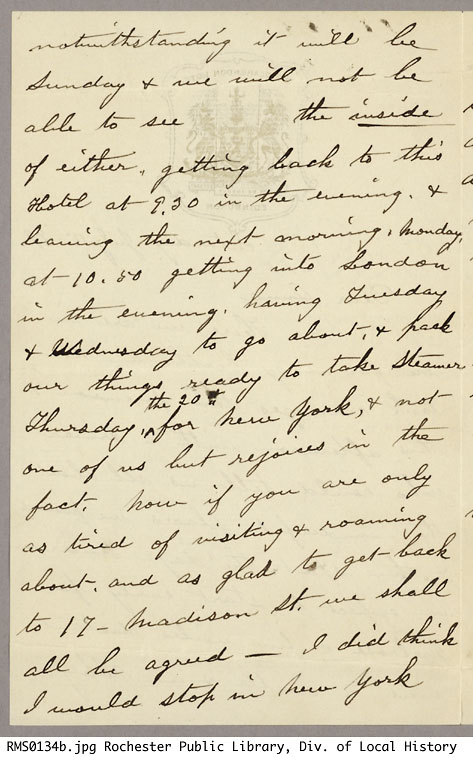 notwithstanding it will be
Sunday & we will not be
able to see the inside
of either, getting back to this
Hotel at 9.30 in the evening. &
leaving the next morning, Monday,
at 10.50 getting into London
in the evening, having Tuesday
& Wednesday to go about, & pack
our things ready to take Steamer
Thursday, the 20th for New York, & not
one of us but rejoices in the
fact. now if you are only
as tired of visiting & roaming
about, and as glad to get back
to 17 - Madison St. we shall
all be agreed — I did think
I would stop in New York
RMS0134b.jpg Rochester Public Library, Div. of Local History